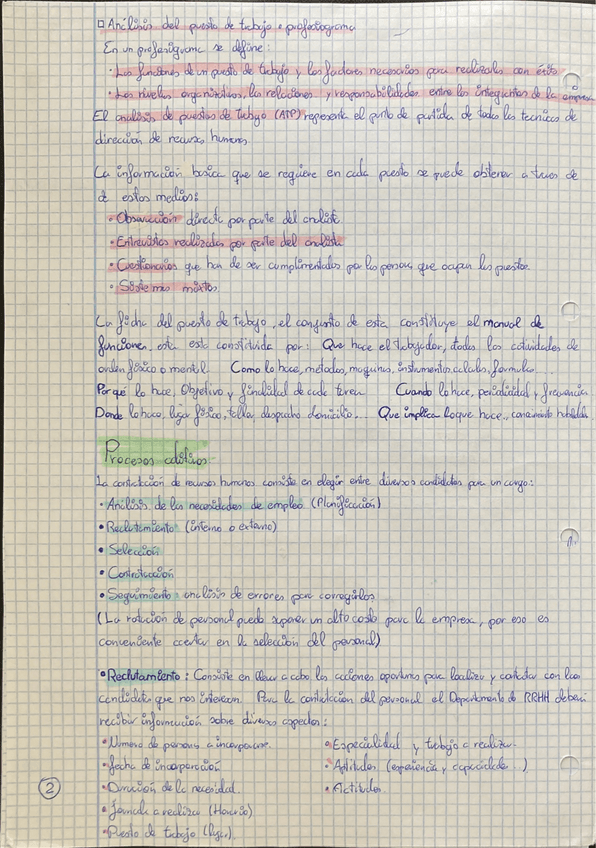 □ Análisis del puesto de trabajo o profesiograma
En un profesiograma se define:
• Las funciones de un puesto de trabajo y los factores necesarios para realizarlas con éxito
• Los niveles organizativos, las relaciones y responsabilidades entre los integrantes de la empresa
El análisis de puestos de trabajo (ATP) representa el punto de partida de todas las tecnicas de
dirección de recursos humanos
La información basica que se requiere en cada puesto se puede obtener a traves de
de estos medios:
• Observación directa por parte del analista
• Entrevistas realizadas por parte del analista
• Cuestionarios que han de ser cumplimentados por las personas que ocupan los puestos
• Sistemas mixtos
La ficha del puesto de trabajo, el conjunto de esta constituye el manual de
funciones, esta esta constituida por: Que hace el trabajador, todas las actividades de
orden físico o mental. Como lo hace, métodos, maquinas, instrumentos, calculos, formulas...
Por qué lo hace, Objetivo y finalidad de cada tarea Cuando lo hace, periodicidad y frecuencia
Donde lo hace, lugar físico, taller despacho domicilio... Que implica lo que hace,, conocimiento habilidades
Procesos
La contratación de recursos humanos consiste en elegir entre diversos candidatos para un cargo:
• Análisis de las necesidades de empleo (Planificación)
• Reclutamiento (interno o externo)
• Selección
• Contratación
• Seguimiento: análisis de errores para corregirlos
(La rotación de personal puede suponer un alto costo para la empresa, por eso es
conveniente acertar en la selección del personal)
• Reclutamiento: Consiste en llevar a cabo las acciones oportunas para localizar y contactar con los
candidatos que nos interesan. Para la contratación del personal el Departamento de RRHH deberá
recibir información sobre diversos aspectos:
• Número de personas a incorporarse.
• Fecha de incorporación
• Duración de la necesidad.
• Jornada a realizar (Horario)
• Puesto de trabajo (lugar)
• Especialidad y trabajo a realizar.
• Aptitudes (experiencia y capacidades..)
• Actitudes.
2